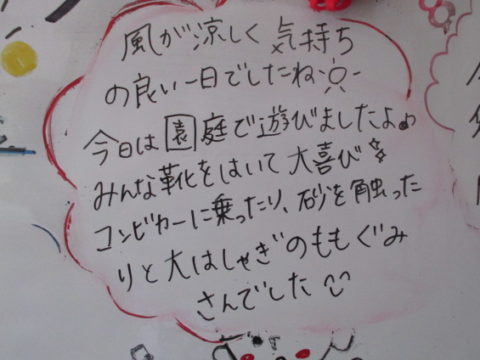 風が涼しく気持ち
の良い一日でしたね
今日は園庭で遊びましたよ♪
みんな靴をはいて大喜び
コンビカーに乗ったり、砂を触った
りと大はしゃぎのももぐみ
さんでした